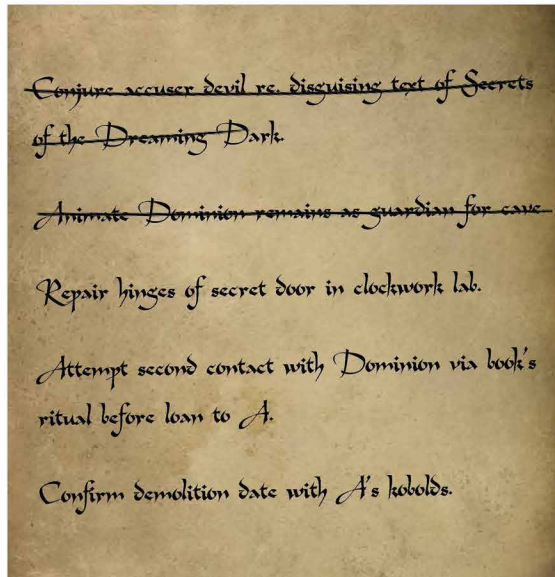 Conjure accuser devil re. disguising text of Secrets
of the Dreaming Dark.
Animate Dominion remains as guardian for cave
Repair hinges of secret door in clockwork lab.
Attempt second contact with Dominion via book's
ritual before loan to A.
Confirm demolition date with A's kobolds.